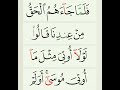 فَلَمَّا جَآءَهُمُ الْحَقُّ
مِنْ عِنْدِنَا قَالُوْا
لَوْلَآ اُوْتِيَ مِثْلَ مَآ
اُوْتِيَ مُوْسٰى ؕ اَوَلَمْ